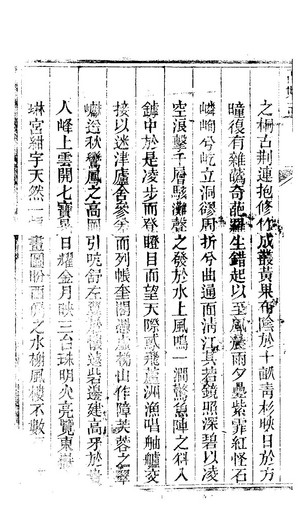 之桐古荆連抱修竹成叢黃果布陰於十畝青杉映日於方
瞳復有雜蘤奇葩羅生錯起以至風晨雨夕疊紫霏紅怪石
嶙峋兮屹立洞徑周折兮曲通面淸江其若鏡照深碧以凌
空浪擊千層駭灘聲之發於水上風鳴一澗驚魚陣之斜入
罅中於是凌步而登瞪目而望天際或飛蘆洲漁唱舳艫交
接以迷津廬舍參差而列帳奎閣
山作障芙蓉之翠
巘逗秋鸞鳳之高岡引吭舒左
遠砦建高牙於
人峰上雲開七寶
日耀金月映三台珠明火亮覽東
琳宮紺宇天然一
畫圖盼酉
之水楊風樓不數